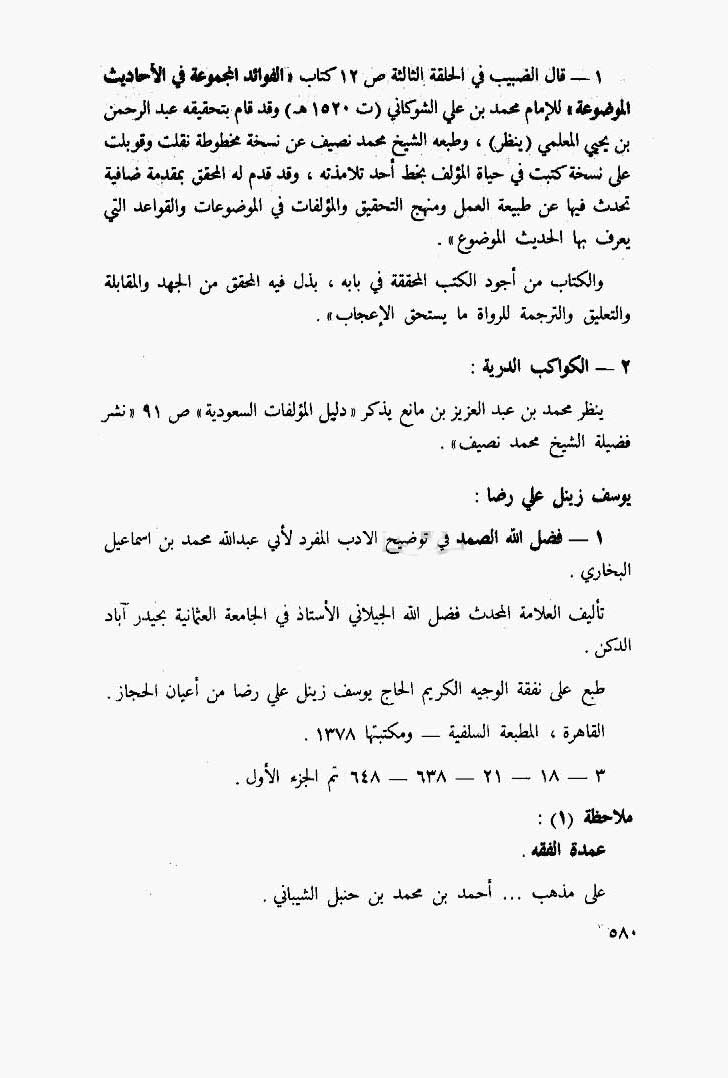 ١ — قال الضبيب في الحلقة الثالثة ص ١٢ كتاب «الفوائد المجموعة في الأحاديث
الموضوعة» للإمام محمد بن علي الشوكاني (ت ١٥٢٠ هـ) وقد قام بتحقيقه عبد الرحمن
بن يحيي المعلمي (ينظر) ، وطبعه الشيخ محمد نصيف عن نسخة مخطوطة نقلت وقوبلت
على نسخة كتبت في حياة المؤلف بخط أحد تلامذته ، وقد قدم له المحقق بمقدمة ضافية
تحدث فيها عن طبيعة العمل ومنهج التحقيق والمؤلفات في الموضوعات والقواعد التي
يعرف بها الحديث الموضوع» .
والكتاب من أجود الكتب المحققة في بابه ، بذل فيه المحقق من الجهد والمقابلة
والتعليق والترجمة للرواة ما يستحق الإعجاب» .
٢ — الكواكب الدرية :
ينظر محمد بن عبد العزيز بن مانع يذكر «دليل المؤلفات السعودية» ص ٩١ «نشر
فضيلة الشيخ محمد نصيف» .
يوسف زينل علي رضا :
١ — فضل الله الصمد في توضيح الادب المفرد لأبي عبدالله محمد بن اسماعيل
البخاري .
تأليف العلامة المحدث فضل الله الجيلاني الأستاذ في الجامعة العثمانية بحيدر آباد
الدكن .
طبع على نفقة الوجيه الكريم الحاج يوسف زينل علي رضا من أعيان الحجاز .
القاهرة ، المطبعة السلفية — ومكتبتها ١٣٧٨ .
٣ — ١٨ — ٢١ — ٦٣٨ — ٦٤٨ تم الجزء الأول .
ملاحظة (١) :
عمدة الفقه .
على مذهب ... أحمد بن محمد بن حنبل الشيباني .
٥٨٠